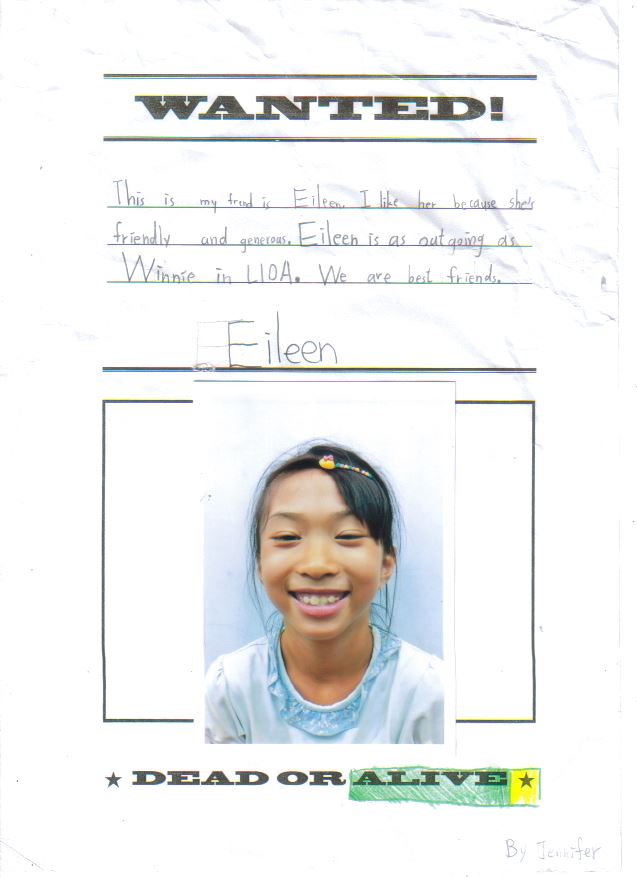 WANTED!
This is my frend is Eileen. I like her because she's
friendly and generous. Eileen is as outgoing as
Winnie in L10A. We are best friends.
Eileen
★ DEAD OR ALIVE ★
By Jennifer